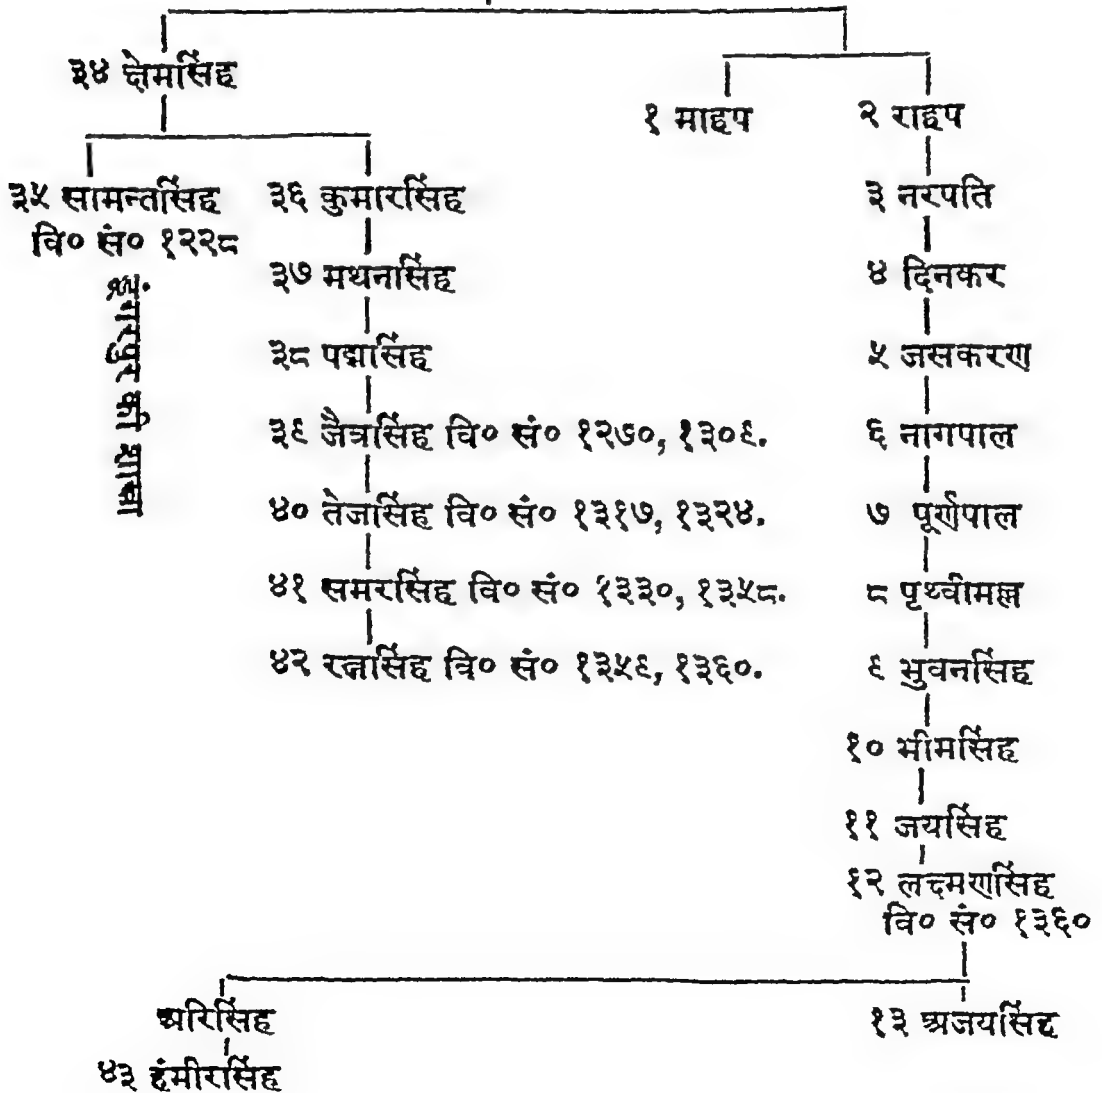 ३४ क्षेमसिंह
१ माहप
२ राहप
३५ सामन्तसिंह
वि० सं० १२२८
डूंगरपुर की शाखा
३६ कुमारसिंह
३७ मथनसिंह
३८ पद्मसिंह
३९ जैत्रसिंह वि० सं० १२७०, १३०९.
४० तेजसिंह वि० सं० १३१७, १३२४.
४१ समरसिंह वि० सं० १३३०, १३५८.
४२ रत्नसिंह वि० सं० १३५९, १३६०.
३ नरपति
४ दिनकर
५ जसकरण
६ नागपाल
७ पूर्णपाल
८ पृथ्वीमल्ल
९ भुवनसिंह
१० भीमसिंह
११ जयसिंह
१२ लक्ष्मणसिंह
वि० सं० १३६०
अरिसिंह
४३ हंमीरसिंह
१३ अजयसिंह